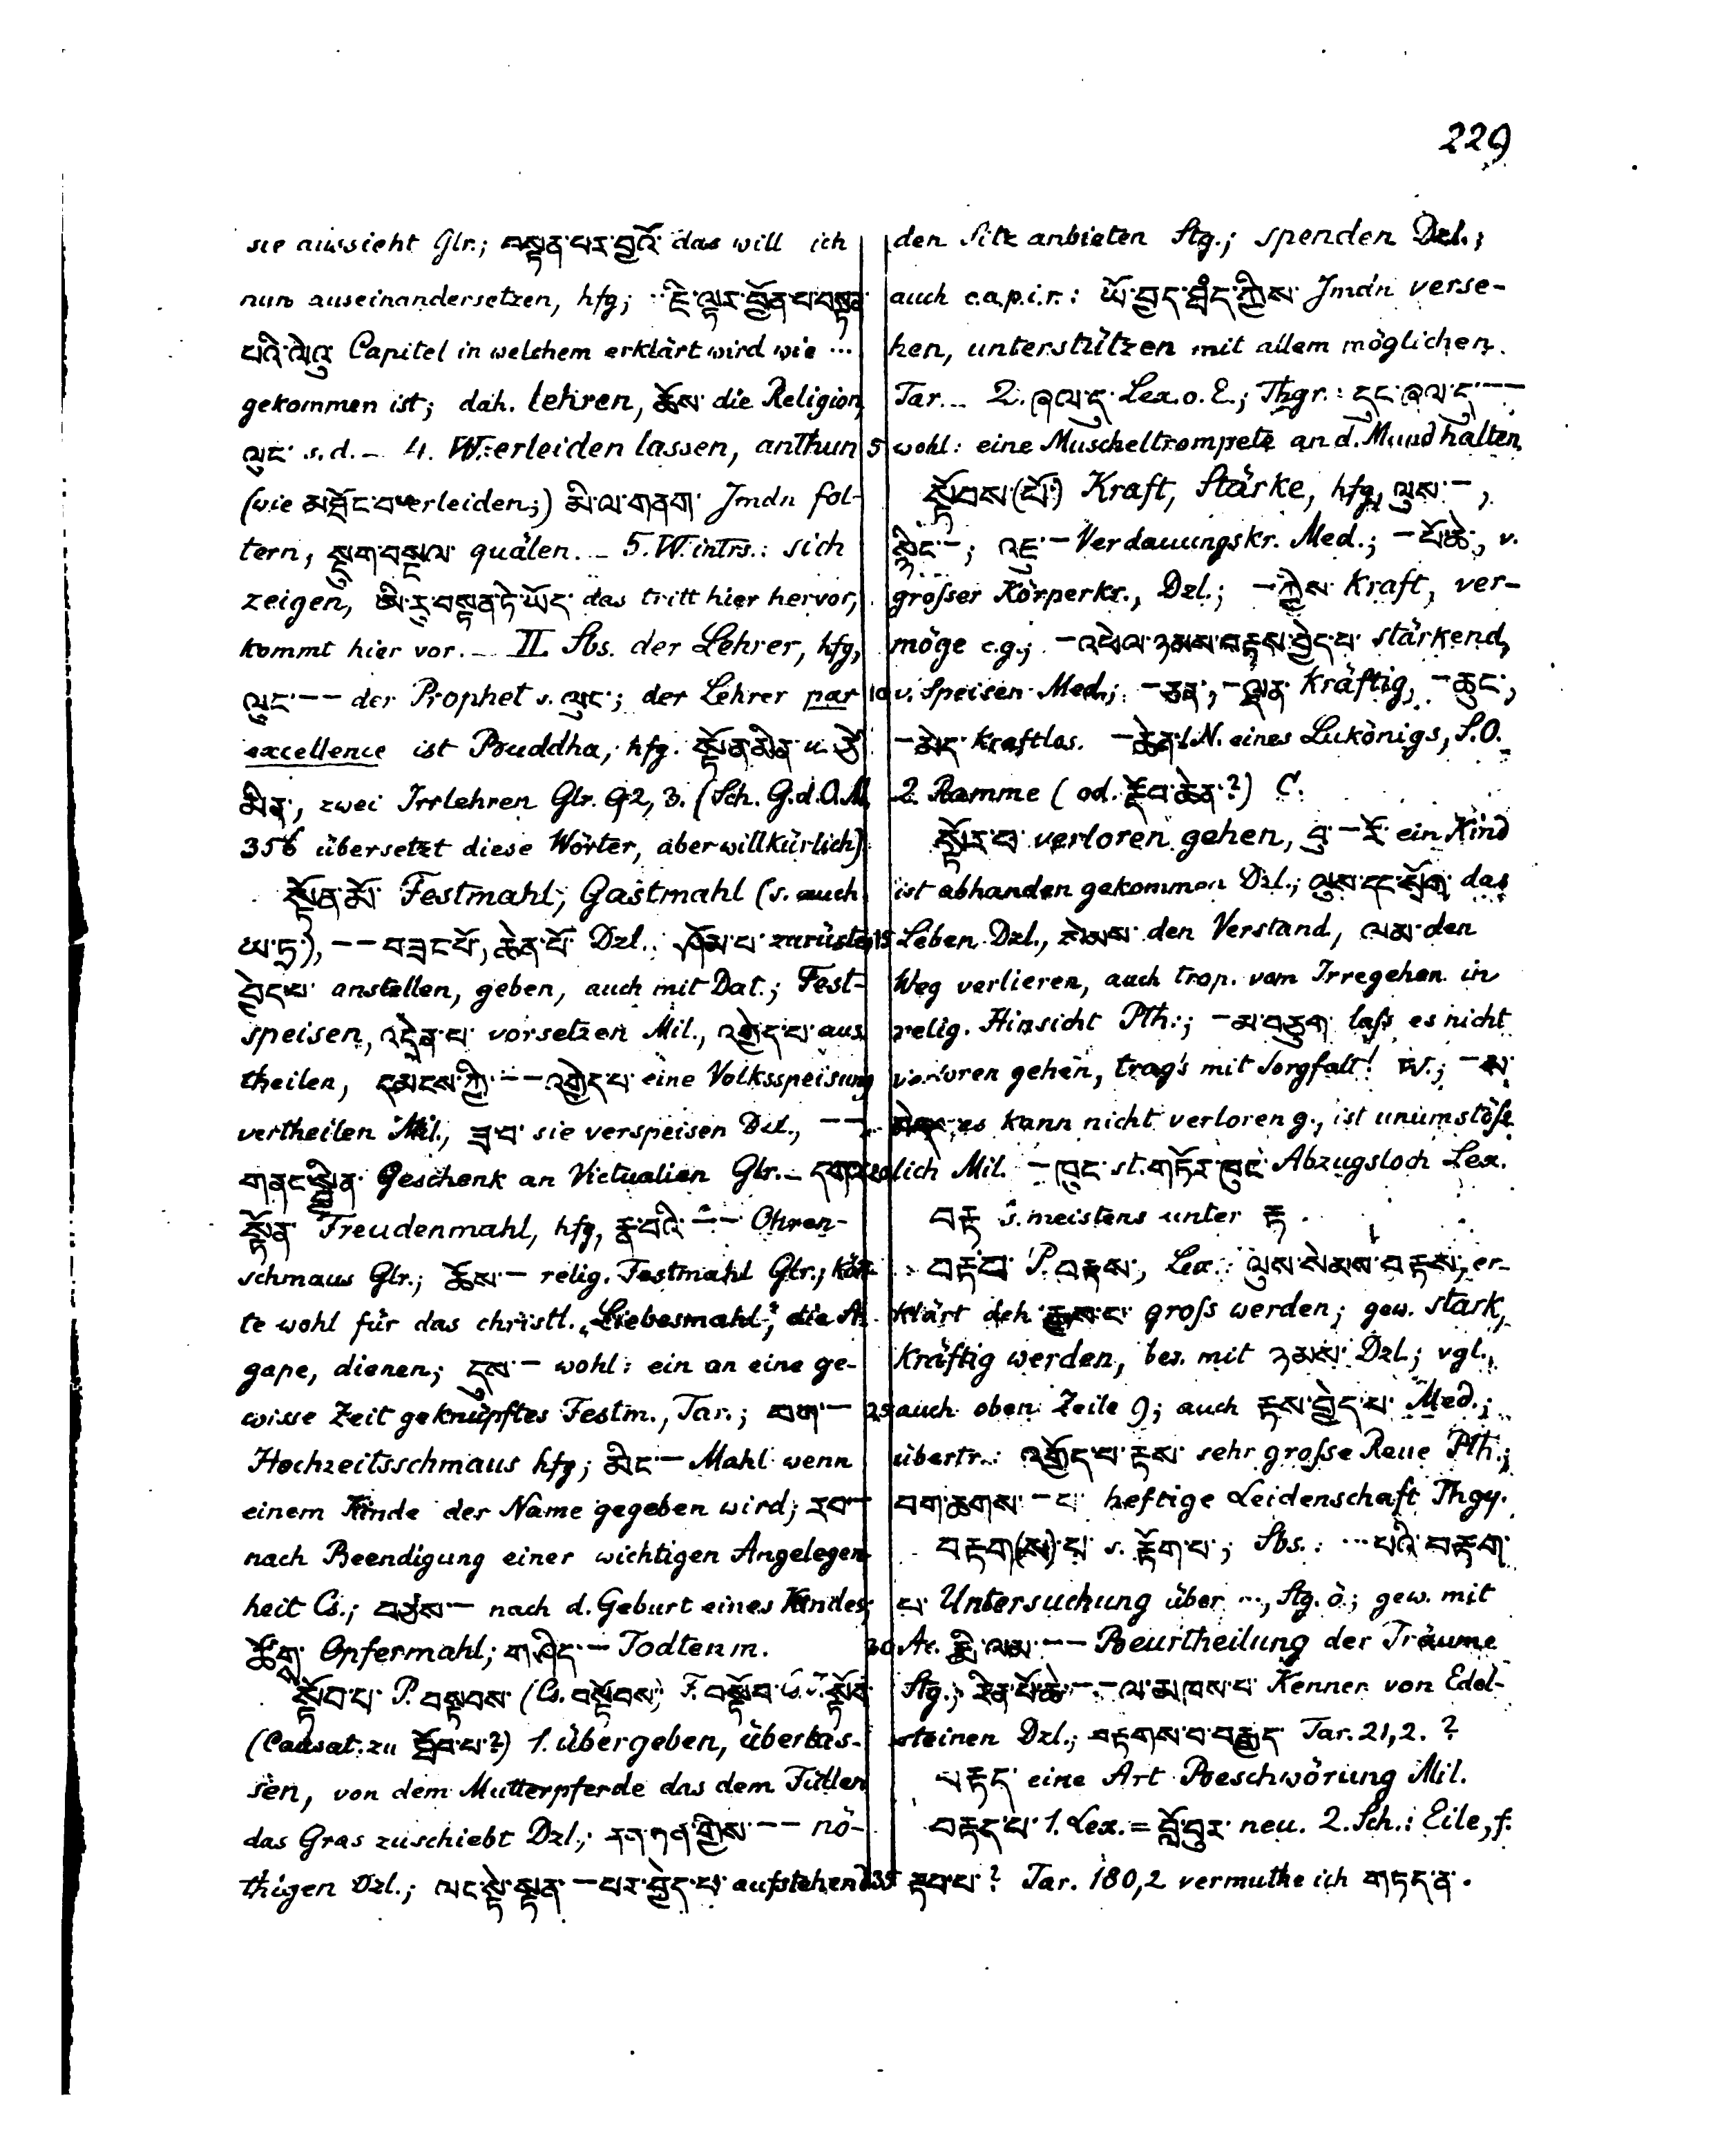 229
sie aussieht Glr.; བསྟན་པར་བྱའོ་ das will ich
nun auseinandersetzen, hfg; ··ཇི་ལྟར་བྱོན་པ་བསྟན་
པའི་ལེའུ་ Capitel in welchem erklärt wird wie ···
gekommen ist; dah. lehren, ཆོས་ die Religion,
ལུང་ s. d. – 4. W.: erleiden lassen, anthun
(wie མཐོང་བ erleiden;) མི་ལ་གནག་ Jmdn fol-
tern, སྡུག་བསྔལ་ quälen. – 5. W. intrs.: sich
zeigen, འི་རུ་བསྟན་ཏེ་ཡོད་ das tritt hier hervor,
kommt hier vor. – II. Sbs. der Lehrer, hfg,
ལུང་–– der Prophet s. ལུང་; der Lehrer par
excellence ist Buddha, hfg. སྟོན་མིན་ u. ཙེ་
མིན་, zwei Irrlehren Glr. 92, 3. (Sch. G.d.O.M.
356 übersetzt diese Wörter, aber willkürlich)
སྟོན་མོ་ Festmahl, Gastmahl (s. auch
ཡ་ཏྲ་), –– བཟང་པོ་, ཆེན་པོ་ Dzl.; ཤོམ་པ་ zurüsten
བྱེད་པ་ anstellen, geben, auch mit Dat.; Fest-
speisen, འདྲེན་པ་ vorsetzen Mil., འགྱེད་པ་ aus
theilen, དམངས་ཀྱི་––འགྱེད་པ་ eine Volksspeisung
vertheilen Mil., ཟ་བ་ sie verspeisen Dzl., ––
གནང་སྦྱིན་ Geschenk an Victualien Glr. – དགའ་
སྟོན་ Freudenmahl, hfg, རྣ་བའི་–– Ohren-
schmaus Glr.; ཆོས་– relig. Festmahl Glr.; könn-
te wohl für das christl. „Liebesmahl“, die A-
gape, dienen; དུས་– wohl: ein an eine ge-
wisse Zeit geknüpftes Festm., Tar.; བག་–
Hochzeitsschmaus hfg; མིང་– Mahl wenn
einem Kinde der Name gegeben wird; རབ་–
nach Beendigung einer wichtigen Angelegen-
heit Cs.; བཙས་– nach d. Geburt eines Kindes;
ཚོགས་ Opfermahl; གཤིད་– Todtenm.
སྟོབ་པ་ P. བསྟབས་ (Cs. བསྟོབས་), F. བསྟོབ་
(Causat. zu ཐོབ་པ་?) 1. übergeben, überlas-
sen, von dem Mutterpferde das dem Füllen
das Gras zuschiebt Dzl.; ནན་ཏན་གྱིས་–– nö-
thigen Dzl.; ལང་སྟེ་སྟན་–པར་བྱེད་པ་ aufstehend
den Sitz anbieten Stg.; spenden Dzl.;
auch c.a.p.i.r.: ཡོ་བྱད་ཀྱིས་ Jmdn verse-
hen, unterstützen mit allem möglichen.
Tar. – 2. ཞལ་དུ་ Lex. o. E.; Thgr.: དུང་ཞལ་དུ་––
5 wohl: eine Muscheltrompete an d. Mund halten,
སྟོབས་(པོ་) Kraft, Stärke, hfg, ལུས་–,
སྙིང་–; འཇུ་– Verdauungskr. Med.; –པོ་ཆེ་, v.
großer Körperkr., Dzl.; –ཀྱིས་ kraft, ver-
möge c.g.; –འཕེལ་ཉམས་བརྟས་བྱེད་པ་ stärkend,
10 v. Speisen Med.; –ཅན་, –ལྡན་ kräftig, –ཆུང་,
–མེད་ kraftlos. –ཆེན་ 1. N. eines Lukönigs, S.O.
2. Ramme (od. རྡོབ་ཆེན་?) C.
སྟོར་བ་ verloren gehen, བུ་–རོ་ ein Kind
ist abhanden gekommen Dzl.; ལུས་དང་སྲོག་ das
15 Leben Dzl., སེམས་ den Verstand, ལམ་ den
Weg verlieren, auch trop. vom Irregehen in
relig. Hinsicht Pth.; –མ་བཅུག་ laß es nicht
verloren gehen, trag's mit Sorgfalt! W.; –ས་
མེད་ es kann nicht verloren g., ist unumstöß-
20 lich Mil. –ཁུང་ st. གཏོར་ཁུང་ Abzugsloch Lex.
བརྟ་ s. meistens unter རྟ.
བརྟ་བ་ P. བརྟས་, Lex.: ལུས་སེམས་བརྟས་, er-
klärt deh རྒྱས་པ་ groß werden; gew. stark,
kräftig werden, bes. mit ཉམས་ Dzl.; vgl.
25 auch oben Zeile 9; auch རྟས་བྱེད་པ་ Med.;
übertr.: འགྱོད་པ་རྟས་ sehr große Reue Pth.;
བག་ཆགས་–པ་ heftige Leidenschaft Thgy.
བརྟག(ས)་པ་ s. རྟོག་པ་; Sbs.: ···པའི་བརྟག་
པ་ Untersuchung über ···, Stg. ö.; gew. mit
30 Ac. རྨི་ལམ་–– Beurtheilung der Träume
Stg.; རིན་པོ་ཆེ་––ལ་མཁས་པ་ Kenner von Edel-
steinen Dzl.; བརྟགས་བ་བརྒྱད་ Tar. 21, 2. ?
བརྟད་ eine Art Beschwörung Mil.
བརྟད་པ་ 1. Lex. = བློ་བུར་ neu. 2. Sch.: Eile, f.
35 རྟབ་པ་? Tar. 180, 2 vermuthe ich གཏད་ན་.